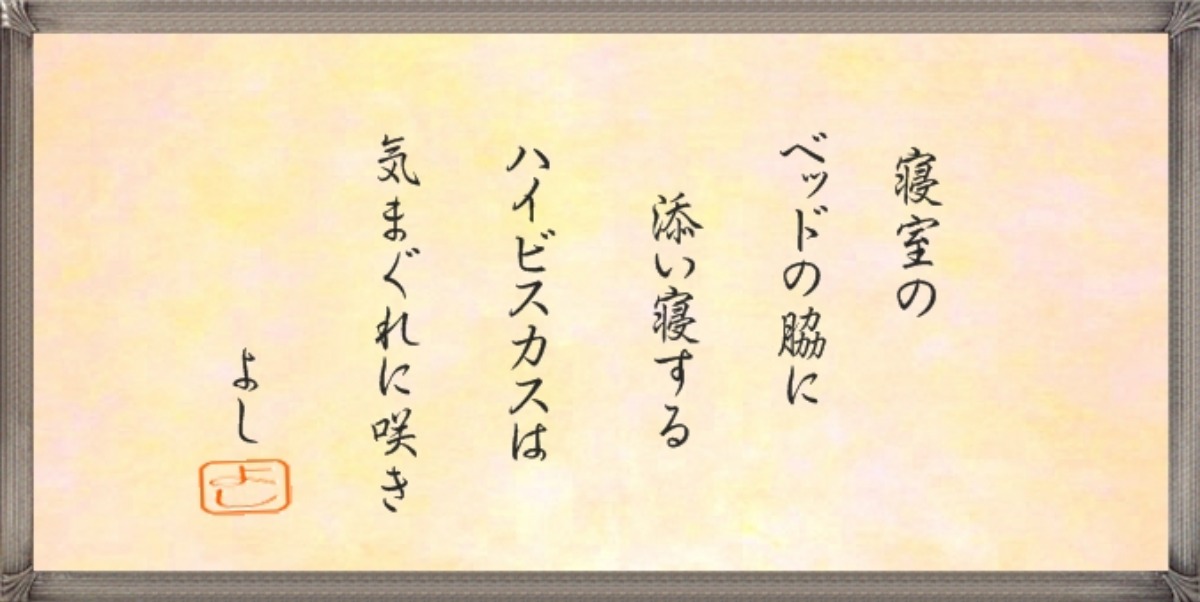 寝室の
ベッドの脇に
添い寝する
ハイビスカスは
気まぐれに咲き
よし
よし